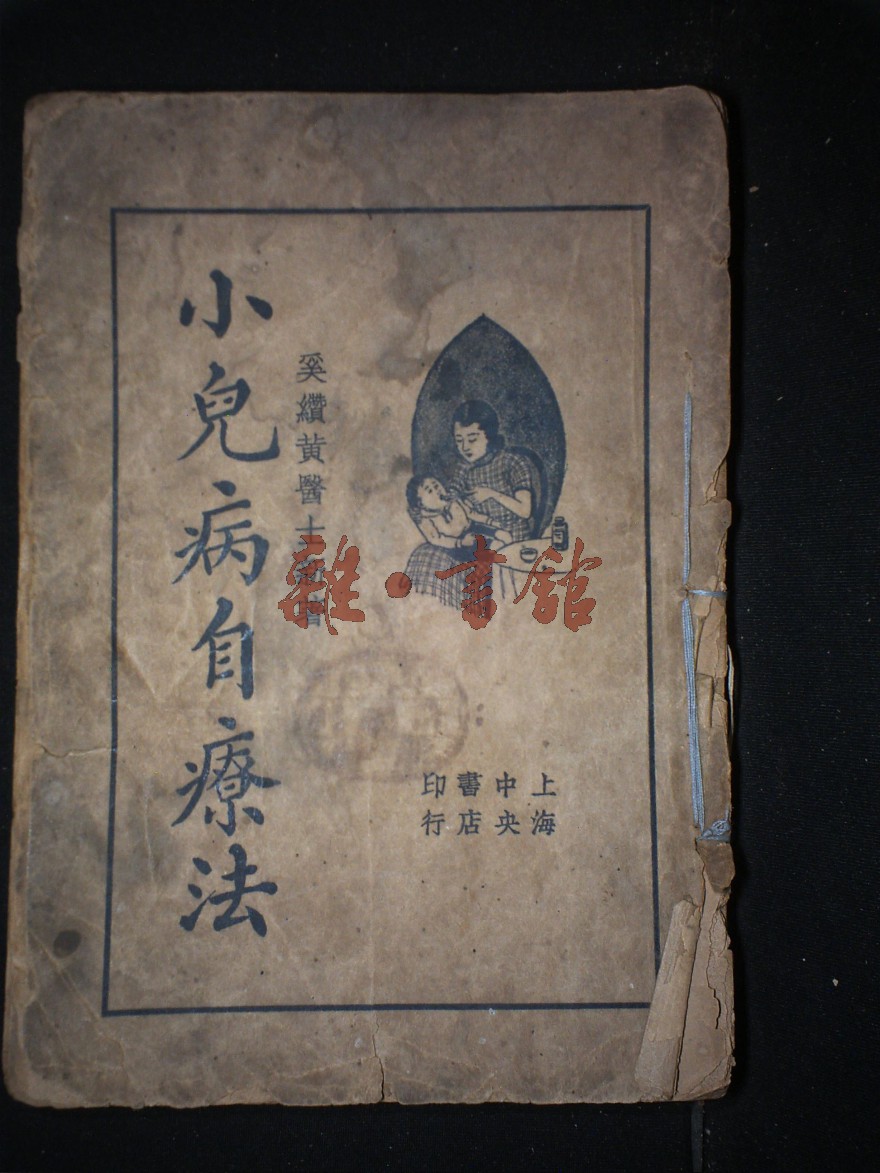 小兒病自療法
奚纘黃醫士
上海
中央
書店
印行
雜·書館